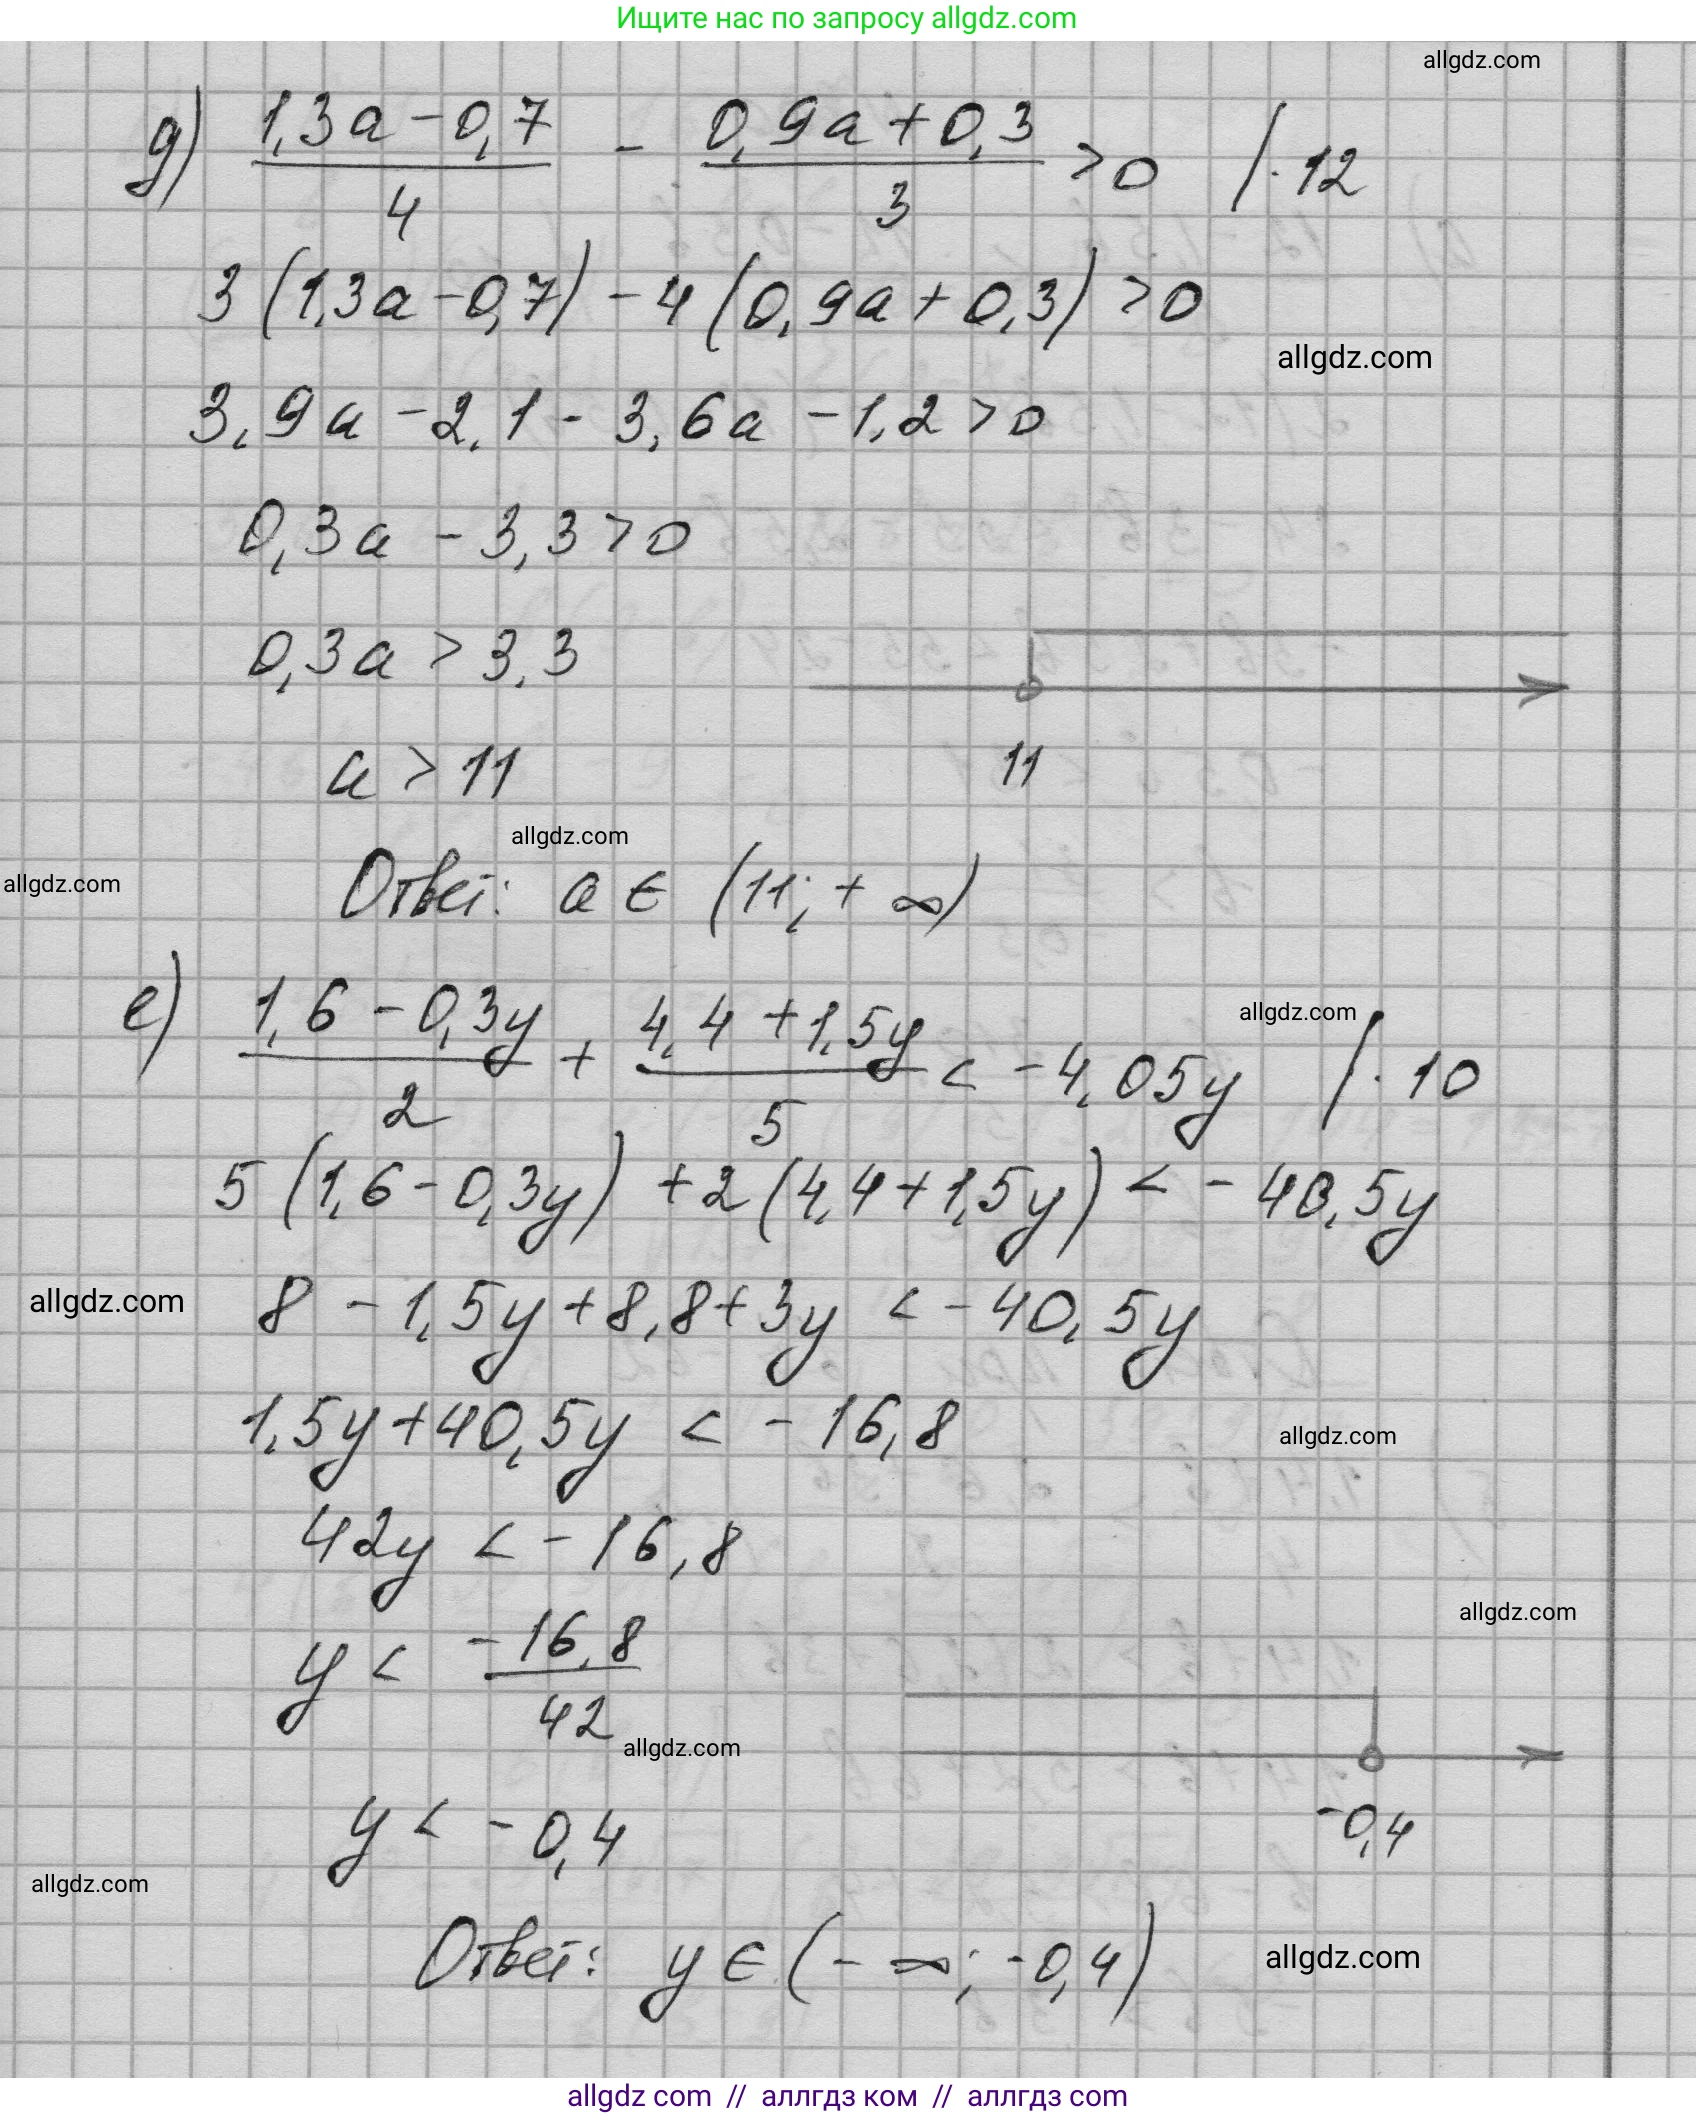 Ищите нас по запросу allgdz.com
allgdz.com
д) (1,3a - 0,7)/4 - (0,9a + 0,3)/3 > 0 /· 12
3 (1,3a - 0,7) - 4 (0,9a + 0,3) > 0
allgdz.com
3,9a - 2,1 - 3,6a - 1,2 > 0
0,3a - 3,3 > 0
0,3a > 3,3
a > 11
11
allgdz.com
allgdz.com
Ответ: a ∈ (11; + ∞)
е) (1,6 - 0,3y)/2 + (4,4 + 1,5y)/5 < - 4,05y /· 10
allgdz.com
5 (1,6 - 0,3y) + 2 (4,4 + 1,5y) < - 40,5y
allgdz.com
8 - 1,5y + 8,8 + 3y < - 40,5y
1,5y + 40,5y < - 16,8
allgdz.com
42y < - 16,8
allgdz.com
y < -16,8/42
allgdz.com
y < - 0,4
-0,4
allgdz.com
Ответ: y ∈ (- ∞; -0,4)
allgdz.com
allgdz com // аллгдз ком // аллгдз com